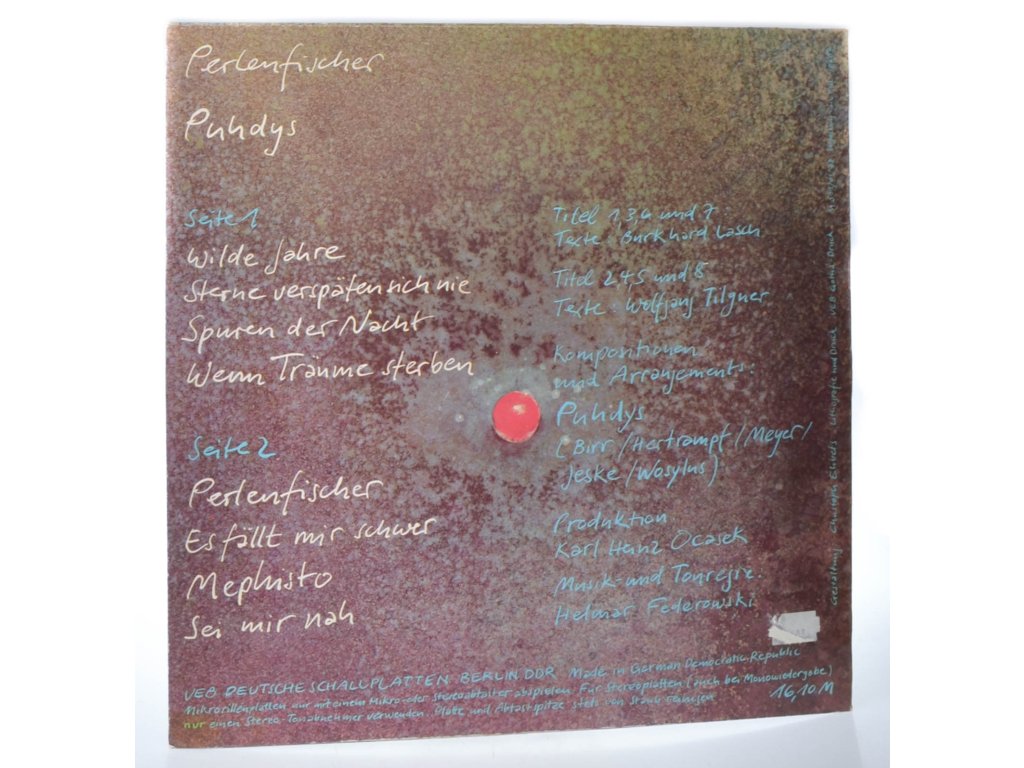 Perlenfischer
Puhdys
Seite 1
Wilde Jahre
Sterne verspäten sich nie
Spuren der Nacht
Wenn Träume sterben
Seite 2
Perlenfischer
Es fällt mir schwer
Mephisto
Sei mir nah
Titel 1, 3, 6 und 7
Texte: Burkhard Lasch
Titel 2 4, 5 und 8
Texte: Wolfgang Tilgner
Kompositionen
und Arrangements:
Puhdys
(Birr/Hertrampf/Meyer/
Jeske/Wosylus)
Produktion
Karl Heinz Ocasek
Musik- und Tonregie:
Helmar Federowski
VEB DEUTSCHE SCHALLPLATTEN BERLIN DDR Made in German Democratic Republic
Mikrorillenplatten nur mit einem Mikro- oder Stereoabtaster abspielen. Für Stereoplatten (auch bei Monowiedergabe)
nur einen Stereo-Tonabnehmer verwenden. Platte und Abtastspitze stets von Staub reinigen
16,10 M
Gestaltung Christoph Ehbets Lithografie und Druck VEB Gotha Druck